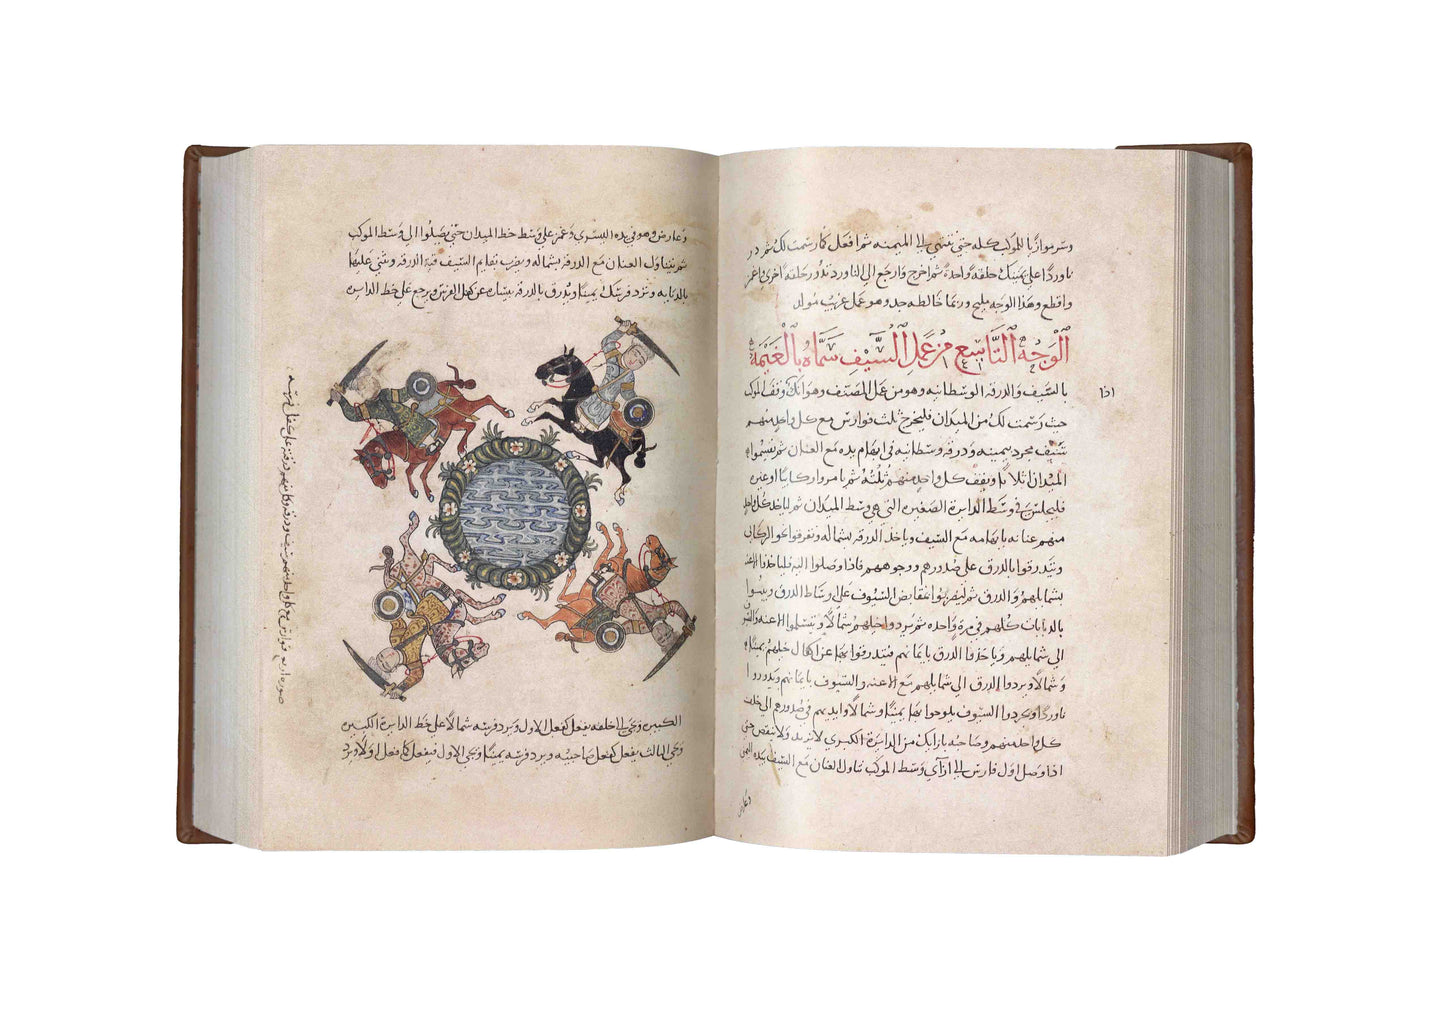 وسر موازيا للموكب كله حتى تنتهي الى الميمنه ثم افعل كما رسمت لك ثم در
ناوردا على يمينك حلقة واحدة ثم اخرج وارجع الى الناورد تدور حلقه اخرى
واقطع وهذا الوجه مليح وربما خالطه جد وهو عمل غريب مولد
الوجه التاسع من عمل السيف سماه بالغيمة
بالسيف والدرقه الوسطانيه وهو من عمل المصنف وهو انك توقف الموكب
اذا
حيث رسمت لك من الميدان فليخرج ثلث فوارس مع كل واحد منهم
سيف مجرد بيمينه ودرقه وسطانيه في ابهام يده مع العنان ثم يقسموا
الميدان ثلاثا ويقف كل واحد منهم ثلثه ثم يامروا ركابيا او غيره
فليجلس في وسط الدايرة الصغيره التي هي وسط الميدان ثم لياخذ كل واحد
منهم عنانه بابهامه مع السيف وياخذ الدرقه بشماله ويتفرقوا نحو الركابي
ويتدرقوا بالدرق على صدورهم ووجوههم فاذا وصلوا اليه فلياخذوا الاعنه
بشمايلهم والدرق ثم ليضربوا بمقابض السيوف على اوساط الدرق ويثنوا
بالدبابات كلهم في مرة واحده ثم يردوا خيلهم شمالا ويتسلموا الاعنه والدرق
الى شمايلهم وياخذوا الدرق بايمانهم فيتدرقوا بها عن اكفال خيلهم يمينا
وشمالا ويردوا الدرق الى شمايلهم مع الاعنه والسيوف بايمانهم ويدوروا
ناوردا ويجردوا السيوف يلوحوا بها يمينا وشمالا وايديهم في صدورهم الى خلف
كل واحد منهم وصاحبه بازايك من الدايرة الكبرى لا يزيد ولا ينقص حتى
اذا وصل اول فارس الى ازآي وسط الموكب تناول العنان مع السيف بيده اليمنى
وعارض
وعارض وهو في يده اليسرى وغمز على وسط خط الميدان حتى يصلوا الى وسط الموكب
ثم يتناول العنان مع الدرقه بشماله ويضرب بقايم السيف قبة الدرقه ويثني عليها
بالدبابه وترد فرسك يمينا ويدرق بالدرقه بيساره عن كفل الفرس ويرجع على خط الدايرة
صوره اربع فوارس مع كل واحد منهم سيف ودرقه وكل منهم درقته على كفل فرسه
الكبيره ويجي الى خلفه يفعل كفعل الاول ويرد فرسه شمالا على خط الدايرة الكبيره
ويجي الثالث يفعل كفعل صاحبيه ويرد فرسه يمينا ويجي الاول فيفعل كما فعل اولا ويرد